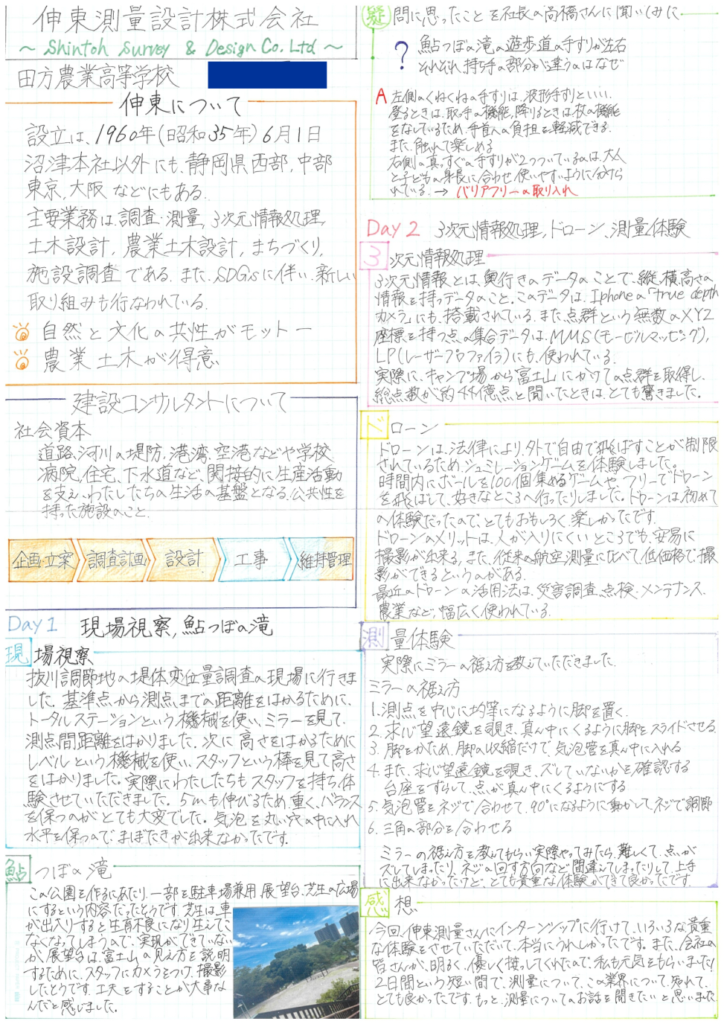 伸東測量設計株式会社
~ Shintoh Survey & Design Co. Ltd ~
田方農業高等学校
伸東について
設立は、1960年(昭和35年)6月1日
沼津本社以外にも、静岡県西部、中部
東京、大阪などにもある。
主要業務は、調査・測量、3次元情報処理
土木設計、農業土木設計、まちづくり、
施設調査である。また、SDGsに伴い、新しい
取り組みも行なわれている。
自然と文化の共性がモットー
農業土木が得意
建設コンサルタントについて
社会資本
道路、河川の堤防、港湾、空港などや学校
病院、住宅、下水道など、間接的に生産活動
を支え、わたしたちの生活の基盤となる、公共性を
持った施設のこと。
企画・立案 調査計画 設計 工事 維持管理
Day1 現場視察, 鮎つぼの滝
現場視察
抜川調節地の堤体変位量調査の現場に行きま
した。基準点から測点までの距離をはかるために、
トータルステーションという機械を使い、ミラーを見て、
測点間距離をはかりました。次に高さをはかるために
レベルという機械を使い、スタッフという棒を見て高さ
をはかりました。実際にわたしたちもスタッフを持ち、体
験させていただきました。5mも伸びるため、重く、バランス
を保つのがとても大変でした。気泡を丸い穴の中に入れ
水平を保つので、まばたきが出来なかったです。
鮎つぼの滝
この公園を作るにあたり、一部を駐車場兼用、展望台、芝生の広場
にするという内容だったそうです。芝生は、車
が出入りすると生育不良になり生えてこ
なくなってしまうので、実現ができていない
が、展望台は、富士山の見え方を説明
するために、スタッフにカメラをつけ、撮影
したそうです。工夫をすることが大事な
んだと感じました。
疑問に思ったことを社長の高橋さんに聞いてみた
? 鮎つぼの滝の遊歩道の手すりが左右
それぞれ持ち手の部分が違うのはなぜ
A 左側のくねくねの手すりは、波形手すりといい、
登るときは、取手の機能、降りるときは杖の機能
をなしているため、手首への負担を軽減できる。
また、触れて楽しめる
右側の真っすぐの手すりが2つついているのは、大人
と子どもの身長に合わせ使いやすいように分けら
れている。→ バリアフリーの取り入れ
Day 2 3次元情報処理, ドローン、測量体験
3次元情報処理
3次元情報とは、奥行きのデータのことで、縦、横、高さの
情報を持つデータのこと。このデータは、Iphoneの「true depth
カメラ」にも、搭載されている。また点群という無数のXYZ
座標を持つ点の集合データは、MMS(モービルマッピング),
LP(レーザープロファイラ)にも、使われている。
実際に、キャンプ場から富士山にかけての点群を取得し、
総点数が約44億点と聞いたときは、とても驚きました。
ドローン
ドローンは、法律により、外で自由で飛ばすことが制限
されているため、シュミレーションゲームを体験しました。
時間内にボールを100個集めるゲームや、フリーでドローン
を飛ばして、好きなところへ行ったりしました。ドローンは初めて
の体験だったので、とてもおもしろく楽しかったです。
ドローンのメリットは、人が入りにくいところでも、安易に
撮影が出来る。また、従来の航空測量に比べて、低価格で、撮
影ができるというのがある。
最近のドローンの活用法は、災害調査、点検・メンテナンス、
農業など、幅広く使われている。
測量体験
実際にミラーの据え方を教えていただきました。
ミラーの据え方
1. 測点を中心に均等になるように脚を置く。
2. 求心望遠鏡を覗き、真ん中にくるように脚をスライドさせる
3. 脚をかため、脚の収縮だけで、気泡管を真ん中に入れる
4. また、求心望遠鏡を覗き、ズレていないかを確認する
台座をずらして、点が真ん中にくるようにする
5. 気泡管をネジで合わせて、90°になるように動かして、ネジで調節
6. 三角の部分を合わせる
ミラーの据え方を教えてもらい、実際やってみたら、難しくて、点が
ズレてしまったり、ネジの回す方向など間違えてしまったりして、上手
に出来なかったけど、とても貴重な体験ができて良かったです
感想
今回、伸東測量さんにインターンシップに行けて、いろいろな貴重
な体験をさせていただいて、本当にうれしかったです。また、会社の
皆さんが、明るく、優しく接してくれたので、私も元気をもらいました!
2日間という短い間で、測量について、この業界について、知れて、
とても良かったです。もっと、測量についてのお話を聞きたいと思いました。